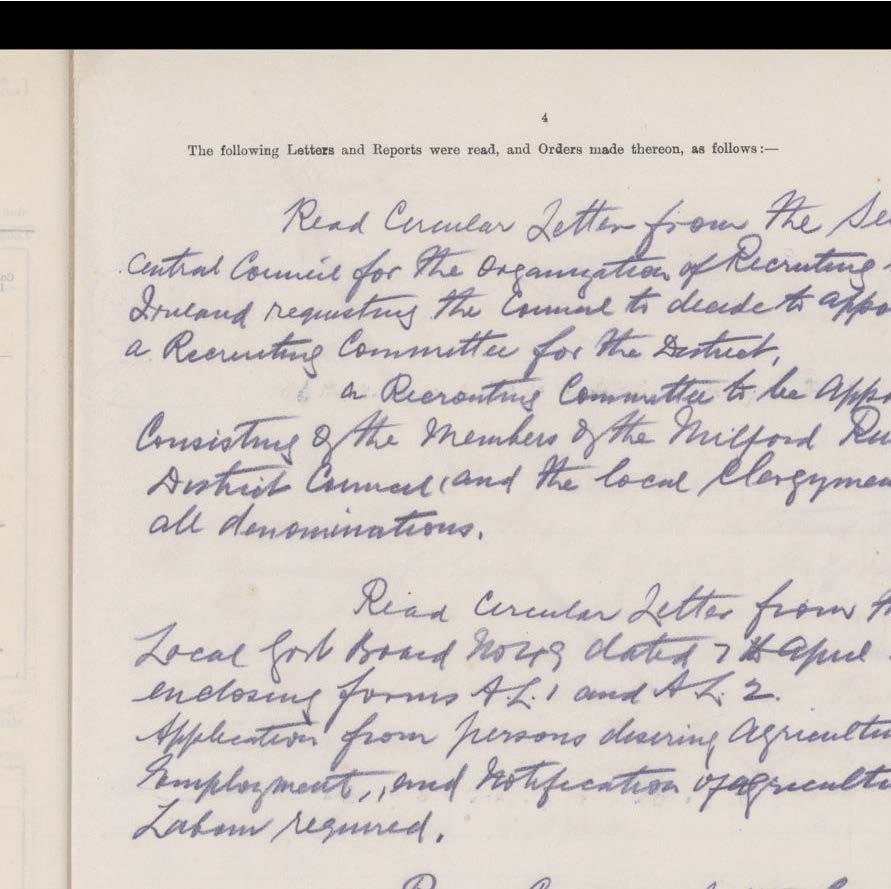 4
The following Letters and Reports were read, and Orders made thereon, as follows:—
Read Circular Letter from the Se
Central Council for the Organization of Recruiting
Ireland requesting the Council to decide to appo
a Recruiting Committee for the District.
a Recruiting Committee to be appo
Consisting of the Members of the Milford Ru
District Council, and the local Clergymen
all denominations.
Read Circular Letter from
Local Govt Board No 49 dated 7th April
enclosing forms A L. 1 and A L. 2.
Application from persons desiring Agricultu
Employment, and Notification of agricultu
Labour required.